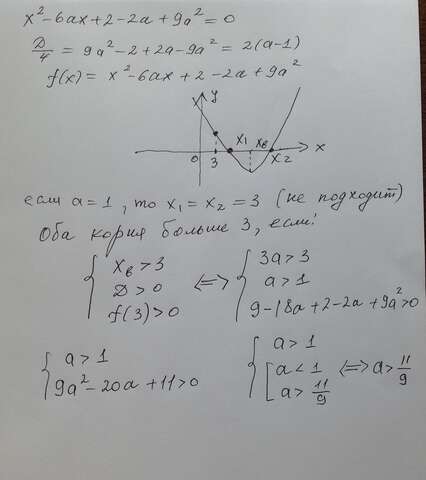 x² - 6ax + 2 - 2a + 9a² = 0
D/4 = 9a² - 2 + 2a - 9a² = 2(a-1)
f(x) = x² - 6ax + 2 - 2a + 9a²
y
x₁ xв
0 3 x₂ x
если a = 1, то x₁ = x₂ = 3 (не подходит)
Оба корня больше 3, если:
{ xв > 3 3a > 3
{ D > 0 <=> { a > 1
{ f(3) > 0 9 - 18a + 2 - 2a + 9a² > 0
{ a > 1 { a > 1
{ 9a² - 20a + 11 > 0 [ a < 1 <=> a > 11/9
[ a > 11/9